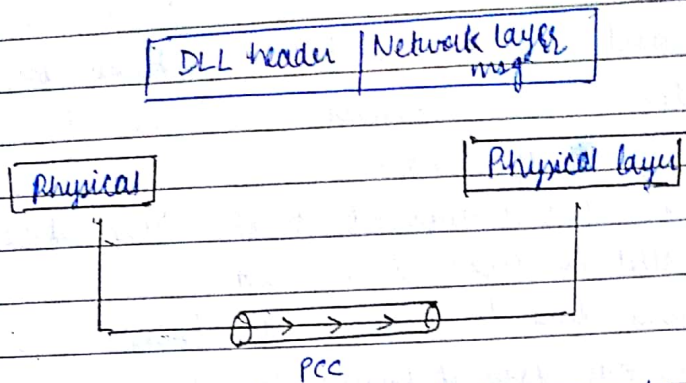 DLL header Network layer
msg
Physical Physical layer
PCC